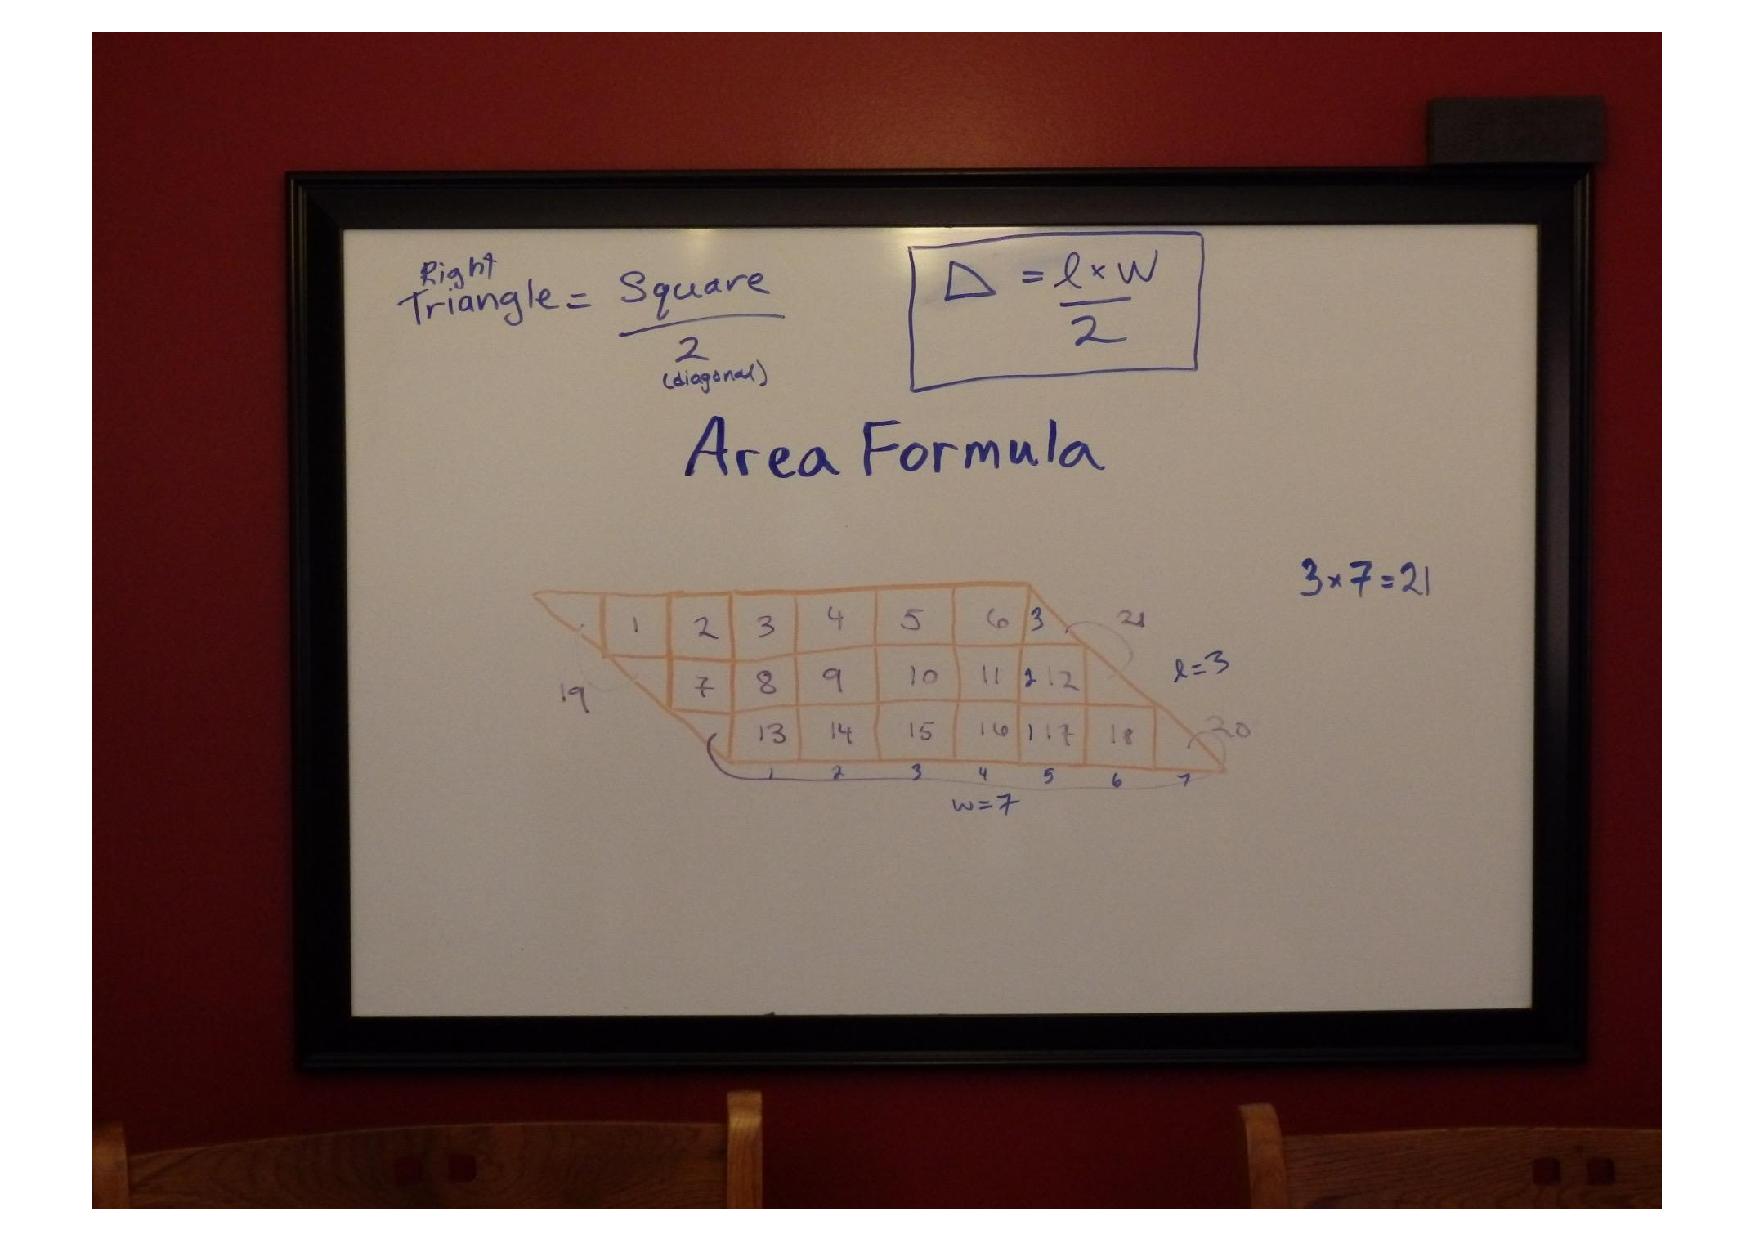 Right
Triangle = Square
2
(diagonal)
= l × w
2
Area Formula
3 × 7 = 21
1 2 3 4 5 6 3 21
19 7 8 9 10 11 2 12 l = 3
13 14 15 16 1 17 18 20
1 2 3 4 5 6 7
w = 7